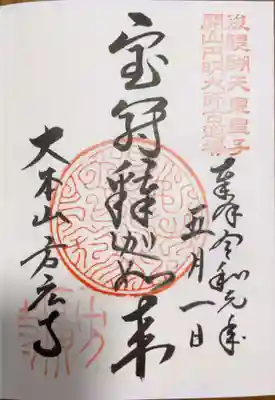 後醍醐天皇皇子
開山円明大師
奉拝 令和元年
五月一日
宝冠釋迦如来
大本山方広寺